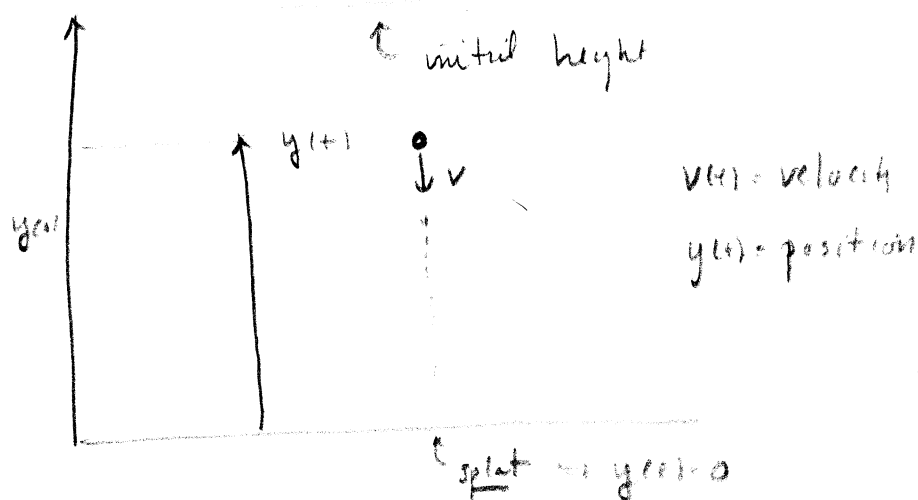 initial height
y(t)
v
v(t) = velocity
y(0)
y(t) = position
splat → y(t) = 0